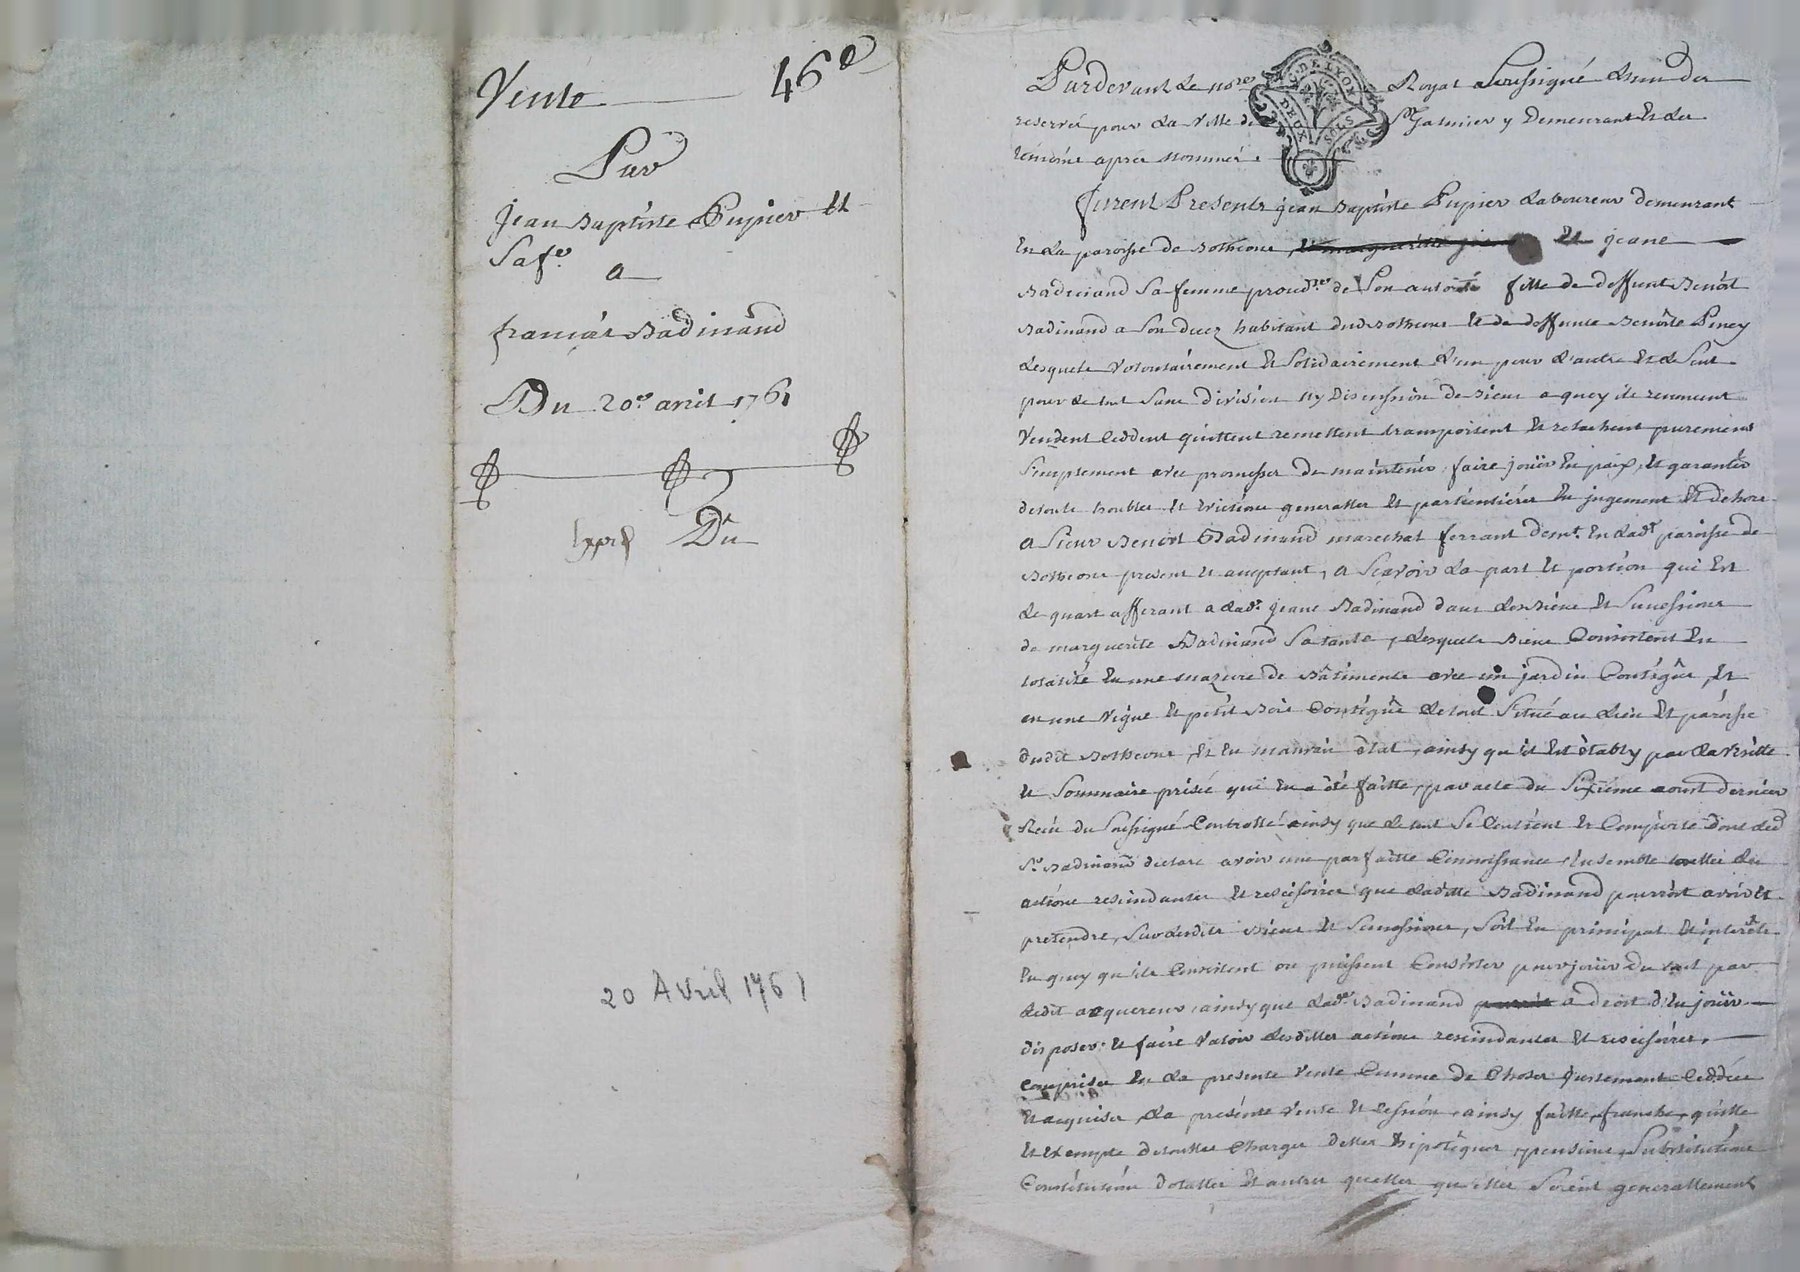 Vente 46e
Par
jean Baptiste Pupier Et
Sa fe.
a
françois Badinand
Du 20e. avril 1761
Exped Du
20 Avril 1761
Pardevant Le nore. Royal Soussigné L'un des
reservés pour La Ville de St Galmier y Demeurant Et Les
témoins apres Nommés.
G. DE LYON
DEUX SOLS
furent Presents jean Baptiste Pupier Laboureur demeurant
En La paroisse de Botheon, Et jeane
Badinand Sa femme de Son autorité fille de deffunt Benoit
Badinand a Son decez habitant dud Botheon Et de deffunte Benoite Piney
Lesquels Volontairement Et Solidairement L'un pour L'autre Et Le Seul
pour Le tout Sans division ny Discussion de Biens a quoy ils renoncent
Vendent Ceddent quittent remettent transportent Et relachent purement
Simplement avec promesses de maintenir, faire jouir En paix, Et garantir
de touts troubles Et Evictions generalles Et particulieres En jugement Et dehors
a Sieur Benoit Badinand marechal ferrant demt. En Ladt paroisse de
Botheon present Et acceptant, a Scavoir La part Et portion qui Est
Le quart afferant a Lade. jeane Badinand dans Les Biens Et Successions
de marguerite Badinand Sa tante, Lesquels Biens Consistent En
totalité En une mazure de Bâtiments avec un jardin Contigûe, Et
en une Vigne Et petit Bois Contigûe Le tout Situé au Lieu Et paroisse
dudit Botheon, Et En mauvais êtat, ainsy qu'il Est êtably par La Visitte
Et Sommaire prisée qui En a êté faitte, par acte du Sixieme aoust dernier
Recu du Soussigné Controllé ainsy que Le tout Se Contient Et Comporte dont Led
Sr. Badinand declare avoir une parfaitte Connoissance, Ensemble touttes Les
actions rescindantes Et rescisoires que Laditte Badinand pourroit avoir Et
pretendre, Sur Lesdits Biens Et Successions, Soit En principal Et interêts
En quoy qu'ils Consistent ou puissent Consister pour jouir du tout par
Ledit acquereur, ainsy que Lade. Badinand a droit d'En jouir
disposer Et faire Valoir Lesdittes actions rescindantes Et rescisoires,
Comprises En La presente Vente Comme de Choses justement Ceddées
Et acquises, La presente Vente Et Cession, ainsy faitte, franche, quitte
Et Exempte de touttes Charges dettes hipotêques, pensions, Substitutions
Constitutions dotalles Et autres quelles qu'elles Soient generallement